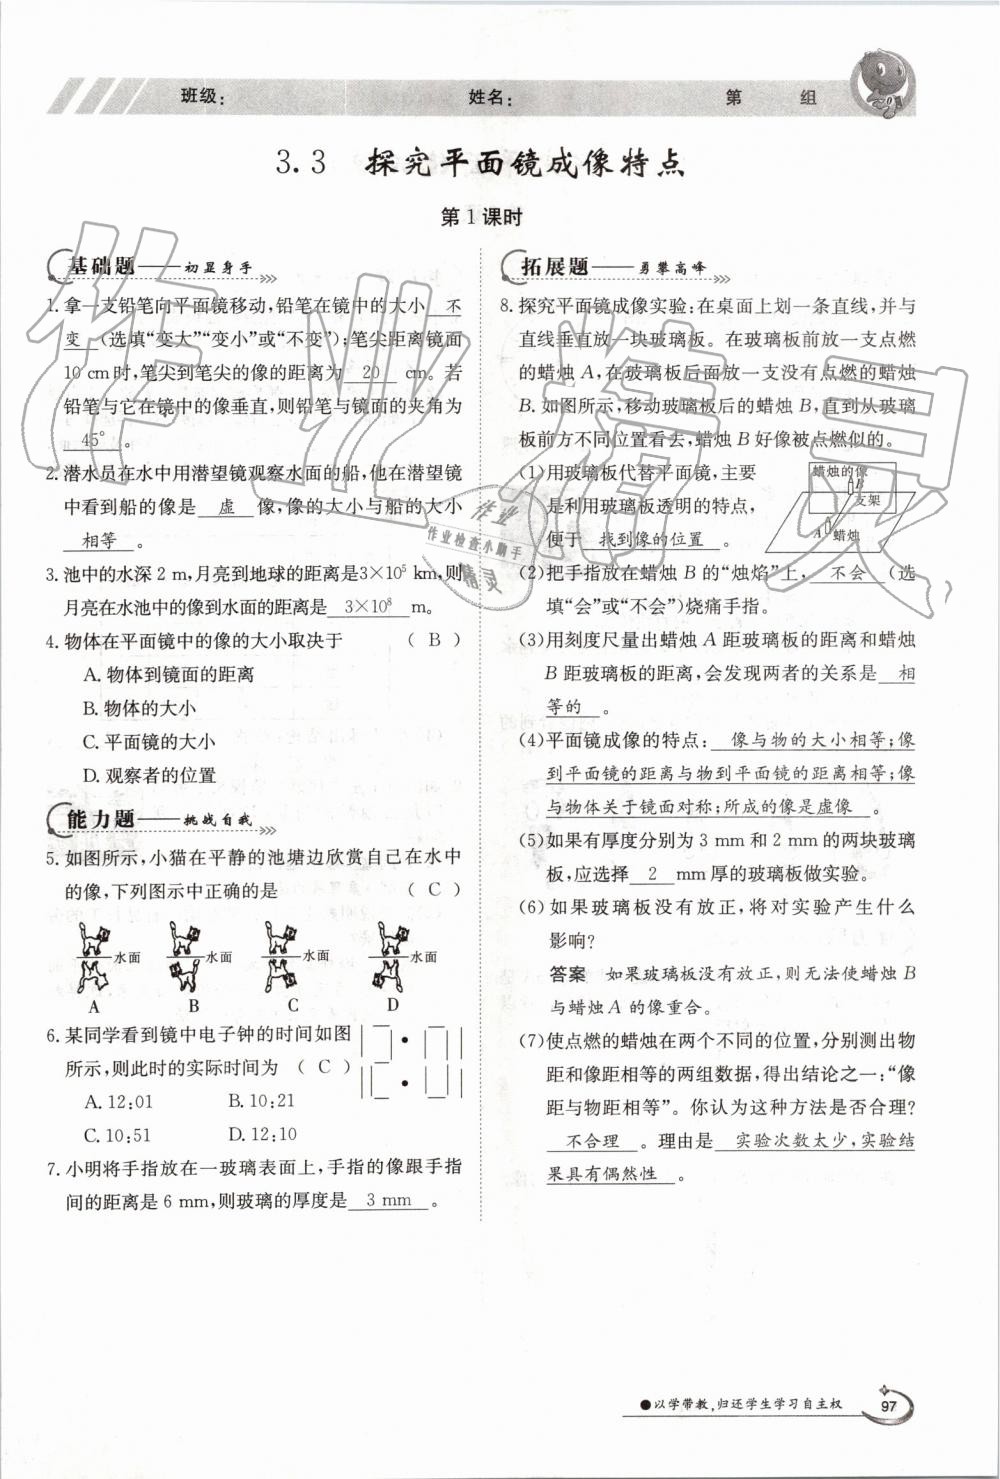 班级：
姓名：
第 组
3.3 探究平面镜成像特点
第1课时
基础题——初显身手
1. 拿一支铅笔向平面镜移动,铅笔在镜中的大小 不
变 (选填“变大”“变小”或“不变”);笔尖距离镜面
10 cm时,笔尖到笔尖的像的距离为 20 cm。若
铅笔与它在镜中的像垂直,则铅笔与镜面的夹角为
45° 。
2. 潜水员在水中用潜望镜观察水面的船,他在潜望镜
中看到船的像是 虚 像,像的大小与船的大小
相等 。
3. 池中的水深 2 m,月亮到地球的距离是3×10⁵ km,则
月亮在水池中的像到水面的距离是 3×10⁸ m。
4. 物体在平面镜中的像的大小取决于 ( B )
A. 物体到镜面的距离
B. 物体的大小
C. 平面镜的大小
D. 观察者的位置
能力题——挑战自我
5. 如图所示,小猫在平静的池塘边欣赏自己在水中
的像,下列图示中正确的是 ( C )
水面 水面 水面 水面
A B C D
6. 某同学看到镜中电子钟的时间如图
所示,则此时的实际时间为 ( C )
A. 12:01 B. 10:21
C. 10:51 D. 12:10
7. 小明将手指放在一玻璃表面上,手指的像跟手指
间的距离是 6 mm,则玻璃的厚度是 3 mm 。
拓展题——勇攀高峰
8. 探究平面镜成像实验:在桌面上划一条直线,并与
直线垂直放一块玻璃板。在玻璃板前放一支点燃
的蜡烛 A,在玻璃板后面放一支没有点燃的蜡烛
B. 如图所示,移动玻璃板后的蜡烛 B,直到从玻璃
板前方不同位置看去,蜡烛 B 好像被点燃似的。
(1)用玻璃板代替平面镜,主要
是利用玻璃板透明的特点,
便于 找到像的位置 。
蜡烛的像
B
支架
A 蜡烛
(2)把手指放在蜡烛 B 的“烛焰”上, 不会 (选
填“会”或“不会”)烧痛手指。
(3)用刻度尺量出蜡烛 A 距玻璃板的距离和蜡烛
B 距玻璃板的距离,会发现两者的关系是 相
等的 。
(4)平面镜成像的特点: 像与物的大小相等;像
到平面镜的距离与物到平面镜的距离相等;像
与物体关于镜面对称;所成的像是虚像 。
(5)如果有厚度分别为 3 mm 和 2 mm 的两块玻璃
板,应选择 2 mm厚的玻璃板做实验。
(6)如果玻璃板没有放正,将对实验产生什么
影响?
答案 如果玻璃板没有放正,则无法使蜡烛 B
与蜡烛 A 的像重合。
(7)使点燃的蜡烛在两个不同的位置,分别测出物
距和像距相等的两组数据,得出结论之一:“像
距与物距相等”。你认为这种方法是否合理?
不合理 。理由是 实验次数太少,实验结
果具有偶然性 。
作业精灵
作业
作业检查小助手
精灵
●以学带教,归还学生学习自主权
97